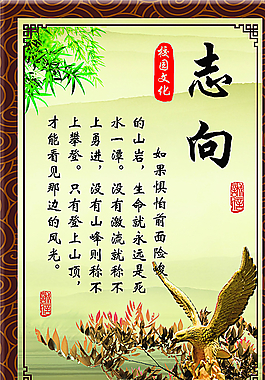 志向
校园文化
如果惧怕前面险峻
的山岩，生命就永远是死
水一潭。没有激流就称不
上勇进，没有山峰则称不
上攀登。只有登上山顶，
才能看见那边的风光。